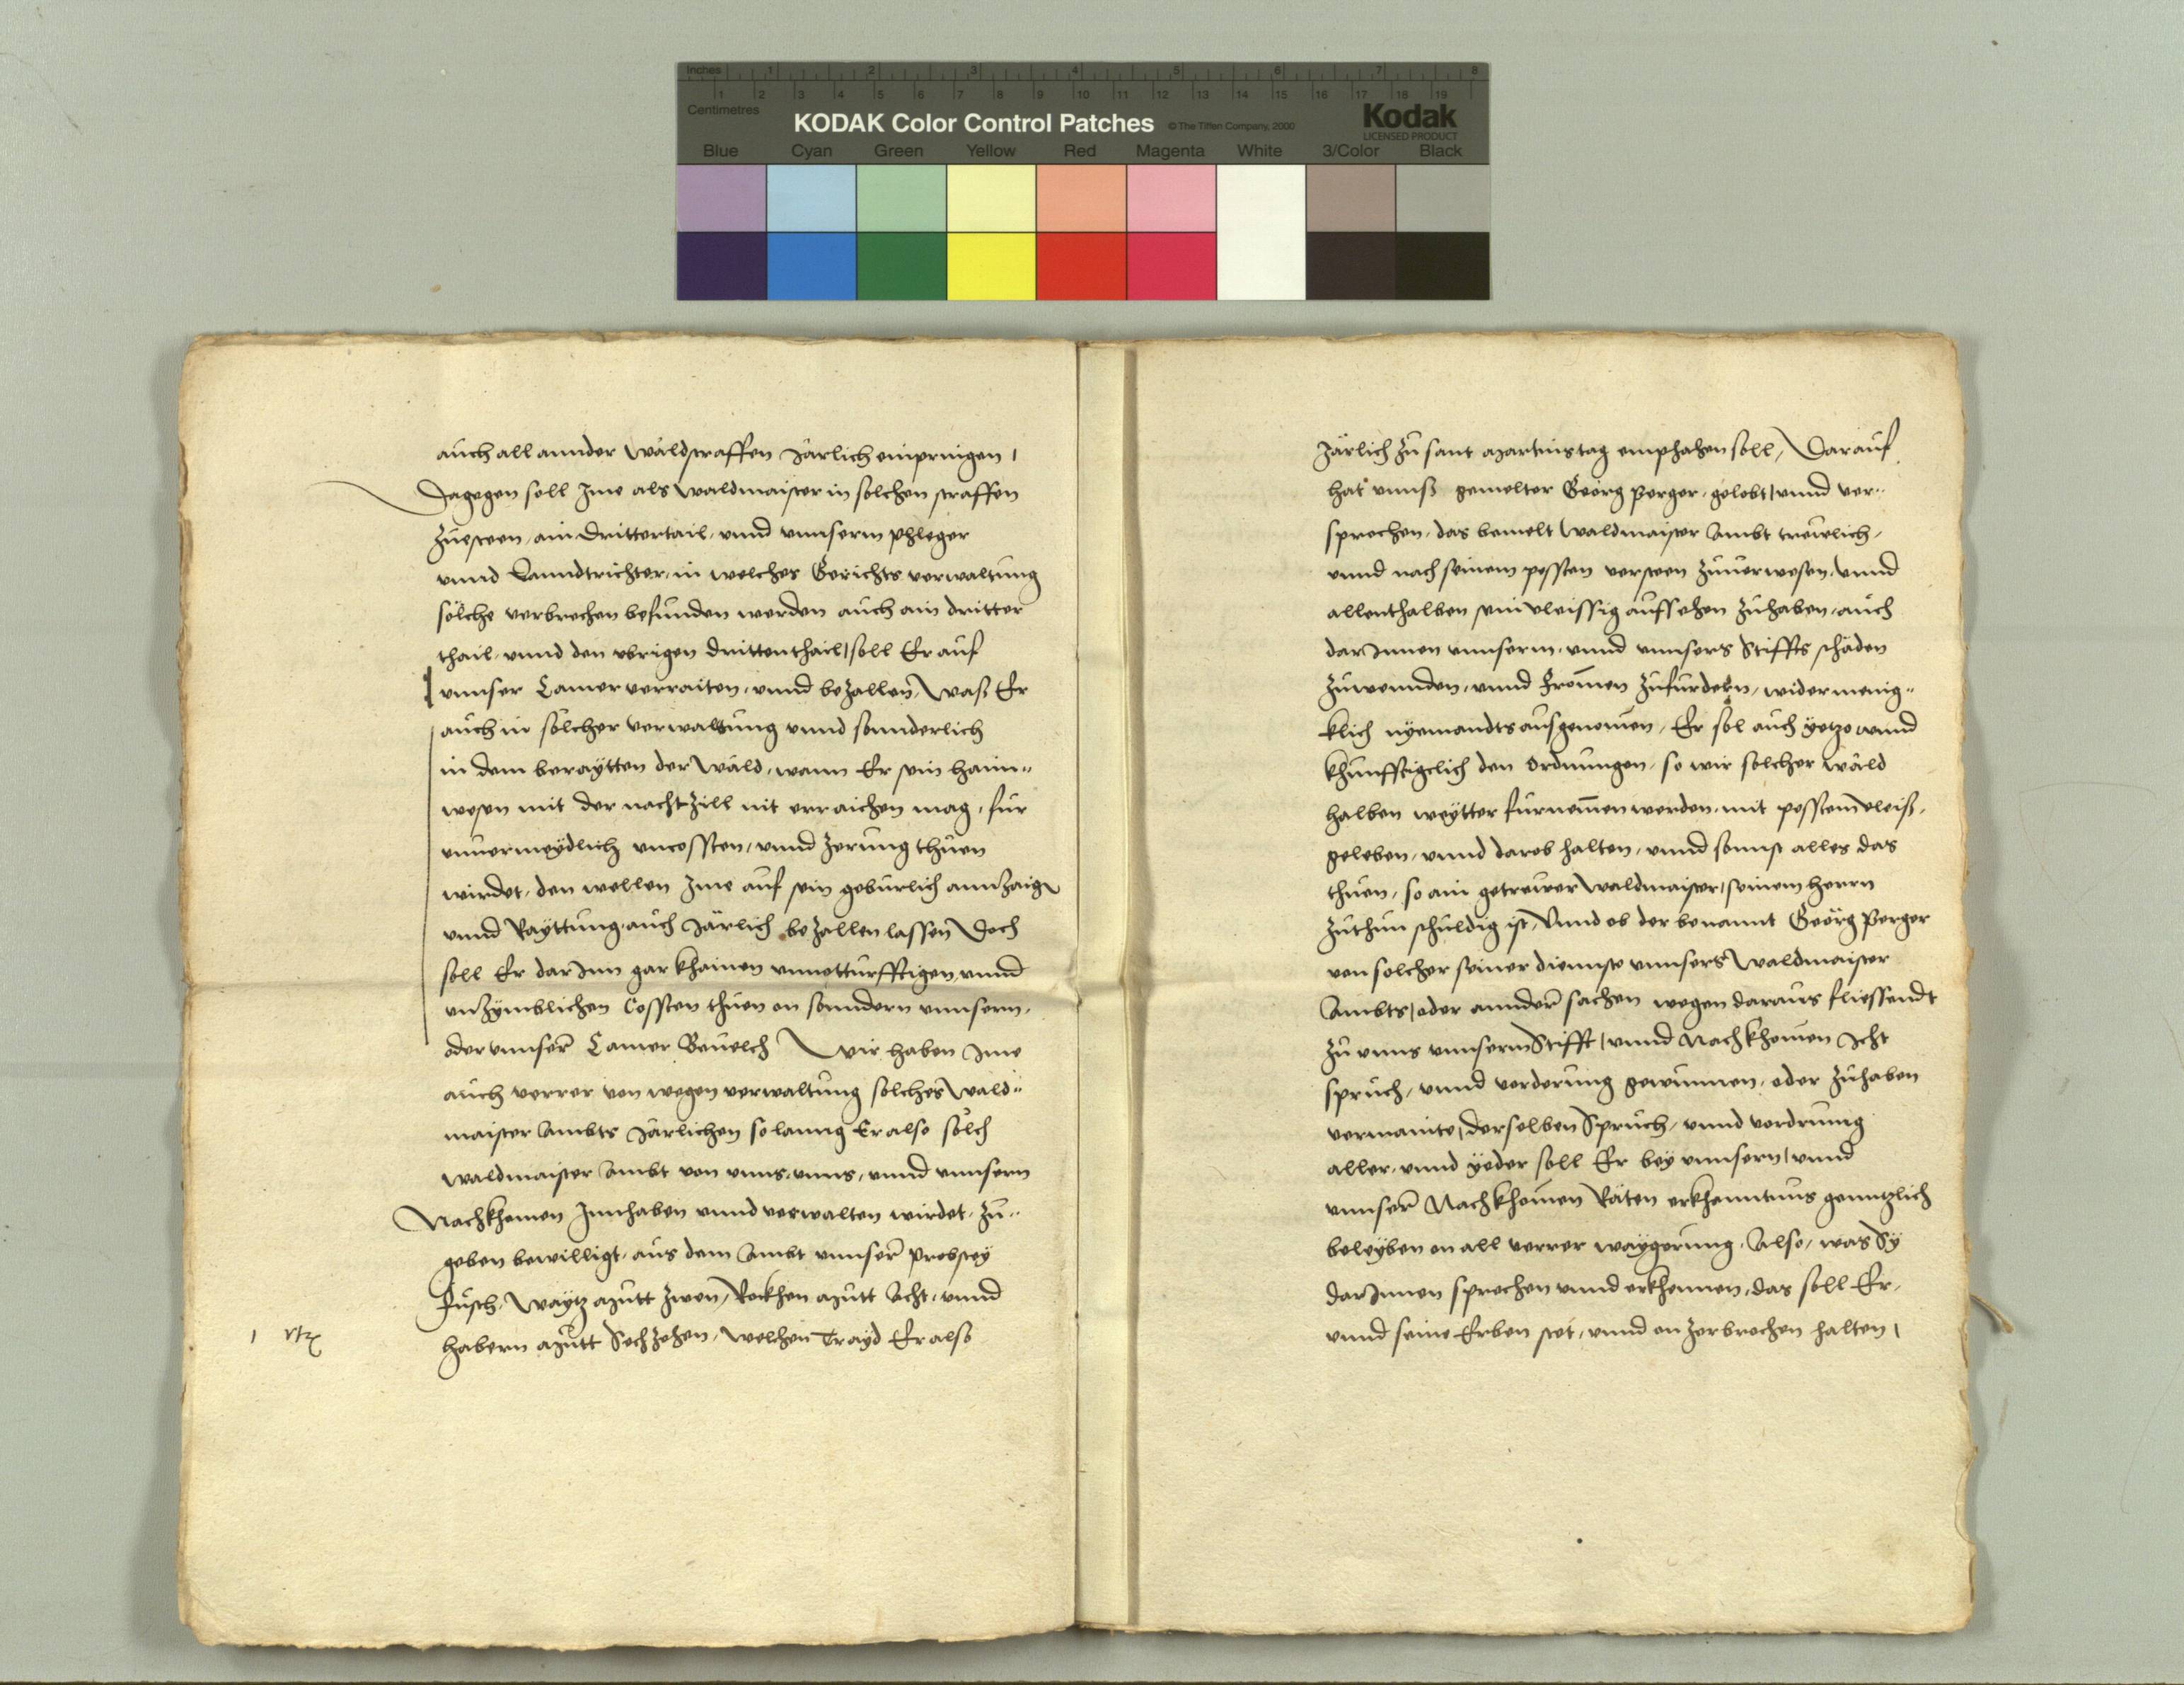 Inches 1 2 3 4 5 6 7 8
1 2 3 4 5 6 7 8 9 10 11 12 13 14 15 16 17 18 19
Centimetres
KODAK Color Control Patches © The Tiffen Company, 2000 Kodak
LICENSED PRODUCT
Blue Cyan Green Yellow Red Magenta White 3/Color Black
auch all annder Wäldstraffen Järlich einpringen /
Dagegen soll Ime als Waldmaister in solchen straffen
zuesteen, ain Drittertail, vnnd vnnserm phleger
vnnd Lanndtrichter, in welches Gerichts verwaltung
solche verbrechen befunden werden auch ain dritter
thail, vnnd den vbrigen drittenthail / soll Er auf
vnnser Camer verraiten, vnnd bezallen, Was Er
auch in solcher verwaltung vnnd sonnderlich
in dem beraÿtten der Wäld, wann Er sein haim-
wesen mit der nachtzill nit erraichen mag, fur
vnuermeydlich vncossten, vnnd Zerung thuen
wirdet, den wellen Ime auf sein geburlich annzaig
vnnd Raÿttung, auch Järlich bezallen lassen Doch
soll Er darInn gar khainen vnnotturfftigen vnnd
vnzÿmblichen Cossten thuen on sonndern vnnsern,
oder vnnser Camer Beuelch Wir haben Ime
auch verrer von wegen verwaltung solches Wald-
maister Ambts Järlichen so lanng Er also solch
Waldmaister Ambt von vnns, vnns, vnnd vnnsern
Nachkhomen Innhaben vnnd verwalten wirdet, zu-
geben bewilligt, aus dem Ambt vnnser Probstey
Fusch, Waÿtz Mutt zwen, Rockhen Mutt Acht, vnnd
habern Mutt Sechzehen, welchen Trayd Er also
Järlich zu sant Martinstag emphahen soll, Darauf
hat vnns gemelter Georg Perger, gelobt / vnnd ver-
sprochen, das bemelt Waldmaister Ambt treulich,
vnnd nach seinem pessten versteen zuuerwesen, vnnd
allenthalben sein vleissig aufsehen zuhaben, auch
darInnen vnnserm, vnnd vnnsers Stiffts schaden
zuwennden, vnnd Fromen zufurdern, wider menig-
klich nÿemandts ausgenomen, Er sol auch yetzo vnnd
khunfftigclich den Ordnungen, so wir solcher wäld
halben weÿtter furnemen werden, mit pesstem vleis,
geleben, vnnd darob halten, vnnd sonnst alles das
thuen, so ain getrewer Waldmaister / seinem herrn
zuthun schuldig ist, Vnnd ob der benannt Georg Perger
von solcher seiner diennste vnnsers Waldmaister
Ambts / oder annder sachen wegen daraus fliessendt
zu vnns vnnserm Stifft / vnnd Nachkhomen Icht
spruch, vnnd vorderung gewunnen, oder zuhaben
vermainte, derselben Spruch, vnnd vordrung
aller, vnnd yeder soll Er bey vnnsern / vnnd
vnnser Nachkhomen Räten erkhanntnus genntzlich
beleyben on all verrer waÿgerung, Also, was Sy
darInnen sprechen vnnd erkhennen, das soll Er,
vnnd seine Erben stet, vnnd onzerbrochen halten /